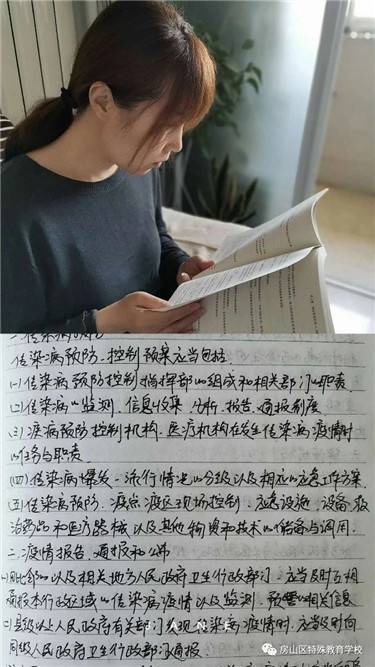 传染病预防、控制预案应当包括
(一)传染病预防控制指挥部的组成和相关部门的职责
(二)传染病的监测、信息收集、分析、报告、通报制度
(三)疾病预防控制机构、医疗机构在发生传染病疫情时
的任务与职责
(四)传染病爆发、流行情况的分级以及相应的应急工作方案
(五)传染病预防、疫点疫区现场控制,应急设施、设备、救
治药品和医疗器械以及其他物资和技术的储备与调用.
二、疫情报告、通报和公布
以及相关地方人民政府卫生行政部门,应当及时互相
通报本行政区域的传染病疫情以及监测、预警的相关信息
县级以上人民政府有关部门发现传染病疫情时,应当及时向
同级人民政府卫生行政部门通报
房山区特殊教育学校